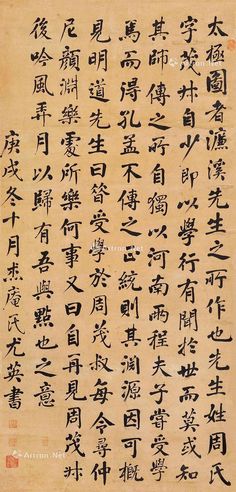 太極圖者濂溪先生之所作也先生姓周氏
字茂叔自少即以學行有聞於世而莫或知
其師傳之所自獨以河南兩程夫子嘗受學
焉而得孔孟不傳之正統則其淵源因可概
見明道先生曰昔受學於周茂叔每令尋仲
尼顏淵樂處所樂何事又曰自再見周茂叔
後吟風弄月以歸有吾與點也之意
庚戌冬十月 庵氏尤英書
Artron.Net